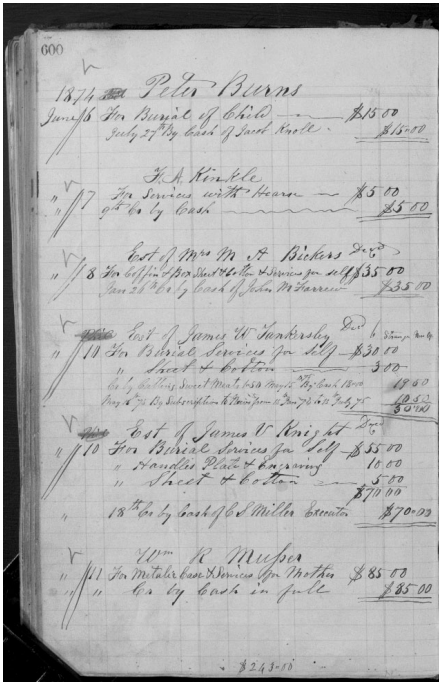 600
Peter Burns
1874
June 6 For Burial of Child $15.00
July 27th By Cash of Jacob Knoll $15.00
F. A. Kinkle
" 7 For Services with Hearse $5 00
" 9th Cr by Cash $5 00
Est of Mrs M A Bickers Decd
" 8 For Coffin & Box Sheet & Cotton & Services for self $35 00
" Jan 26th Cr by Cash of John McFarrew $35 00
Est of James W Tankersley Decd
" 10 For Buriale Services for Self $30 00
" Sheet & Cotton 3 00
Cr by Cash 19 50
By Subscription to from to July 75
Est of James V Knight Decd
" 10 For Burial Services for Self $55 00
" Handles Plate & Engraving 10 00
" Sheet & Cotton 5 00
$70 00
" 18th Cr by Cash of C S Miller Executor $70.00
Wm R Musser
" 11 For Metalic Case & Services for Mother $85 00
" " Cr by Cash in full $85 00
$243.00